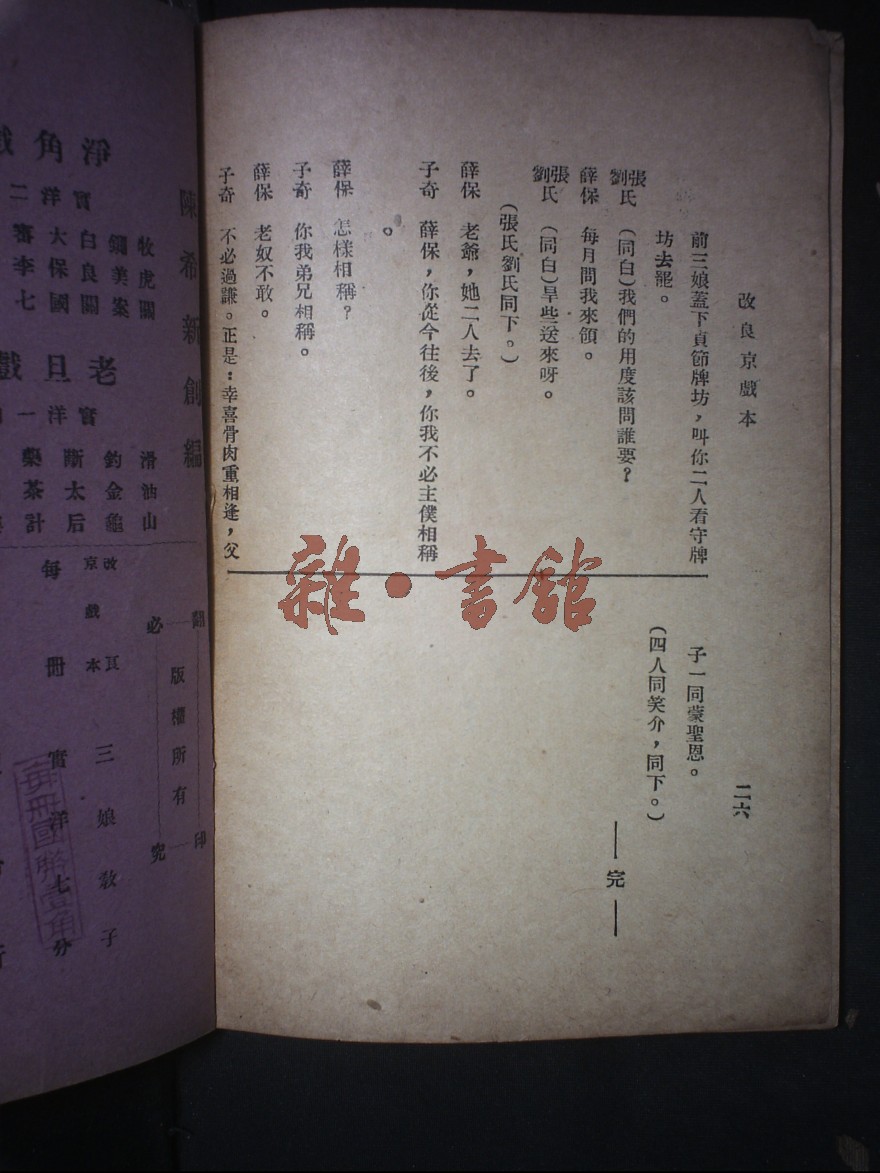 改良京戲本
二六
前三娘蓋下貞節牌坊，叫你二人看守牌
坊去罷。
張氏劉氏 （同白）我們的用度該問誰要？
薛保 每月問我來領。
張氏劉氏 （同白）早些送來呀。
（張氏劉氏同下。）
薛保 老爺，她二人去了。
子奇 薛保，你從今往後，你我不必主僕相稱
。
薛保 怎樣相稱？
子奇 你我弟兄相稱。
薛保 老奴不敢。
子奇 不必過謙。正是：幸喜骨肉重相逢，父
子一同蒙聖恩。
（四人同笑介，同下。）
——完——
雜·書館
陳希新創編
淨角戲
實洋二
牧虎關
鍘美案
白良關
大保國
審李七
老旦戲
實洋一
滑油山
釣金龜
斷太后
藥茶計
翻印必究
版權所有
改良京戲本
三娘教子
每冊實洋七分
每冊國幣壹角